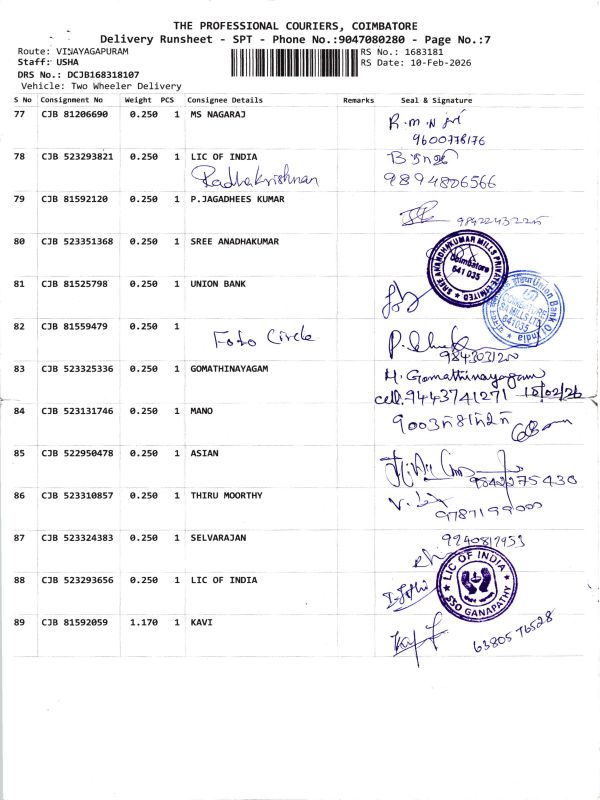 THE PROFESSIONAL COURIERS, COIMBATORE
Delivery Runsheet - SPT - Phone No.:9047080280 - Page No.:7
Route: VINAYAGAPURAM
RS No.: 1683181
Staff: USHA
RS Date: 10-Feb-2026
DRS No.: DCJB168318107
Vehicle: Two Wheeler Delivery
S No Consignment No Weight PCS Consignee Details Remarks Seal & Signature
77 CJB 81206690 0.250 1 MS NAGARAJ
9600778176
78 CJB 523293821 0.250 1 LIC OF INDIA
Radhakrishnan 9894806566
79 CJB 81592120 0.250 1 P.JAGADHEES KUMAR
80 CJB 523351368 0.250 1 SREE ANADHAKUMAR
SREE ANANDHAKUMAR MILLS PRIVATE LIMITED
Coimbatore
641 035
81 CJB 81525798 0.250 1 UNION BANK
Union Bank Of India
COIMBATORE
641035
82 CJB 81559479 0.250 1
Foto Circle
83 CJB 523325336 0.250 1 GOMATHINAYAGAM
M. Gomathinayagam
cell. 9443741271 10/02/26
84 CJB 523131746 0.250 1 MANO
85 CJB 522950478 0.250 1 ASIAN
9842275430
86 CJB 523310857 0.250 1 THIRU MOORTHY
87 CJB 523324383 0.250 1 SELVARAJAN
88 CJB 523293656 0.250 1 LIC OF INDIA
LIC OF INDIA
SSO GANAPATHY
89 CJB 81592059 1.170 1 KAVI
63805 76528